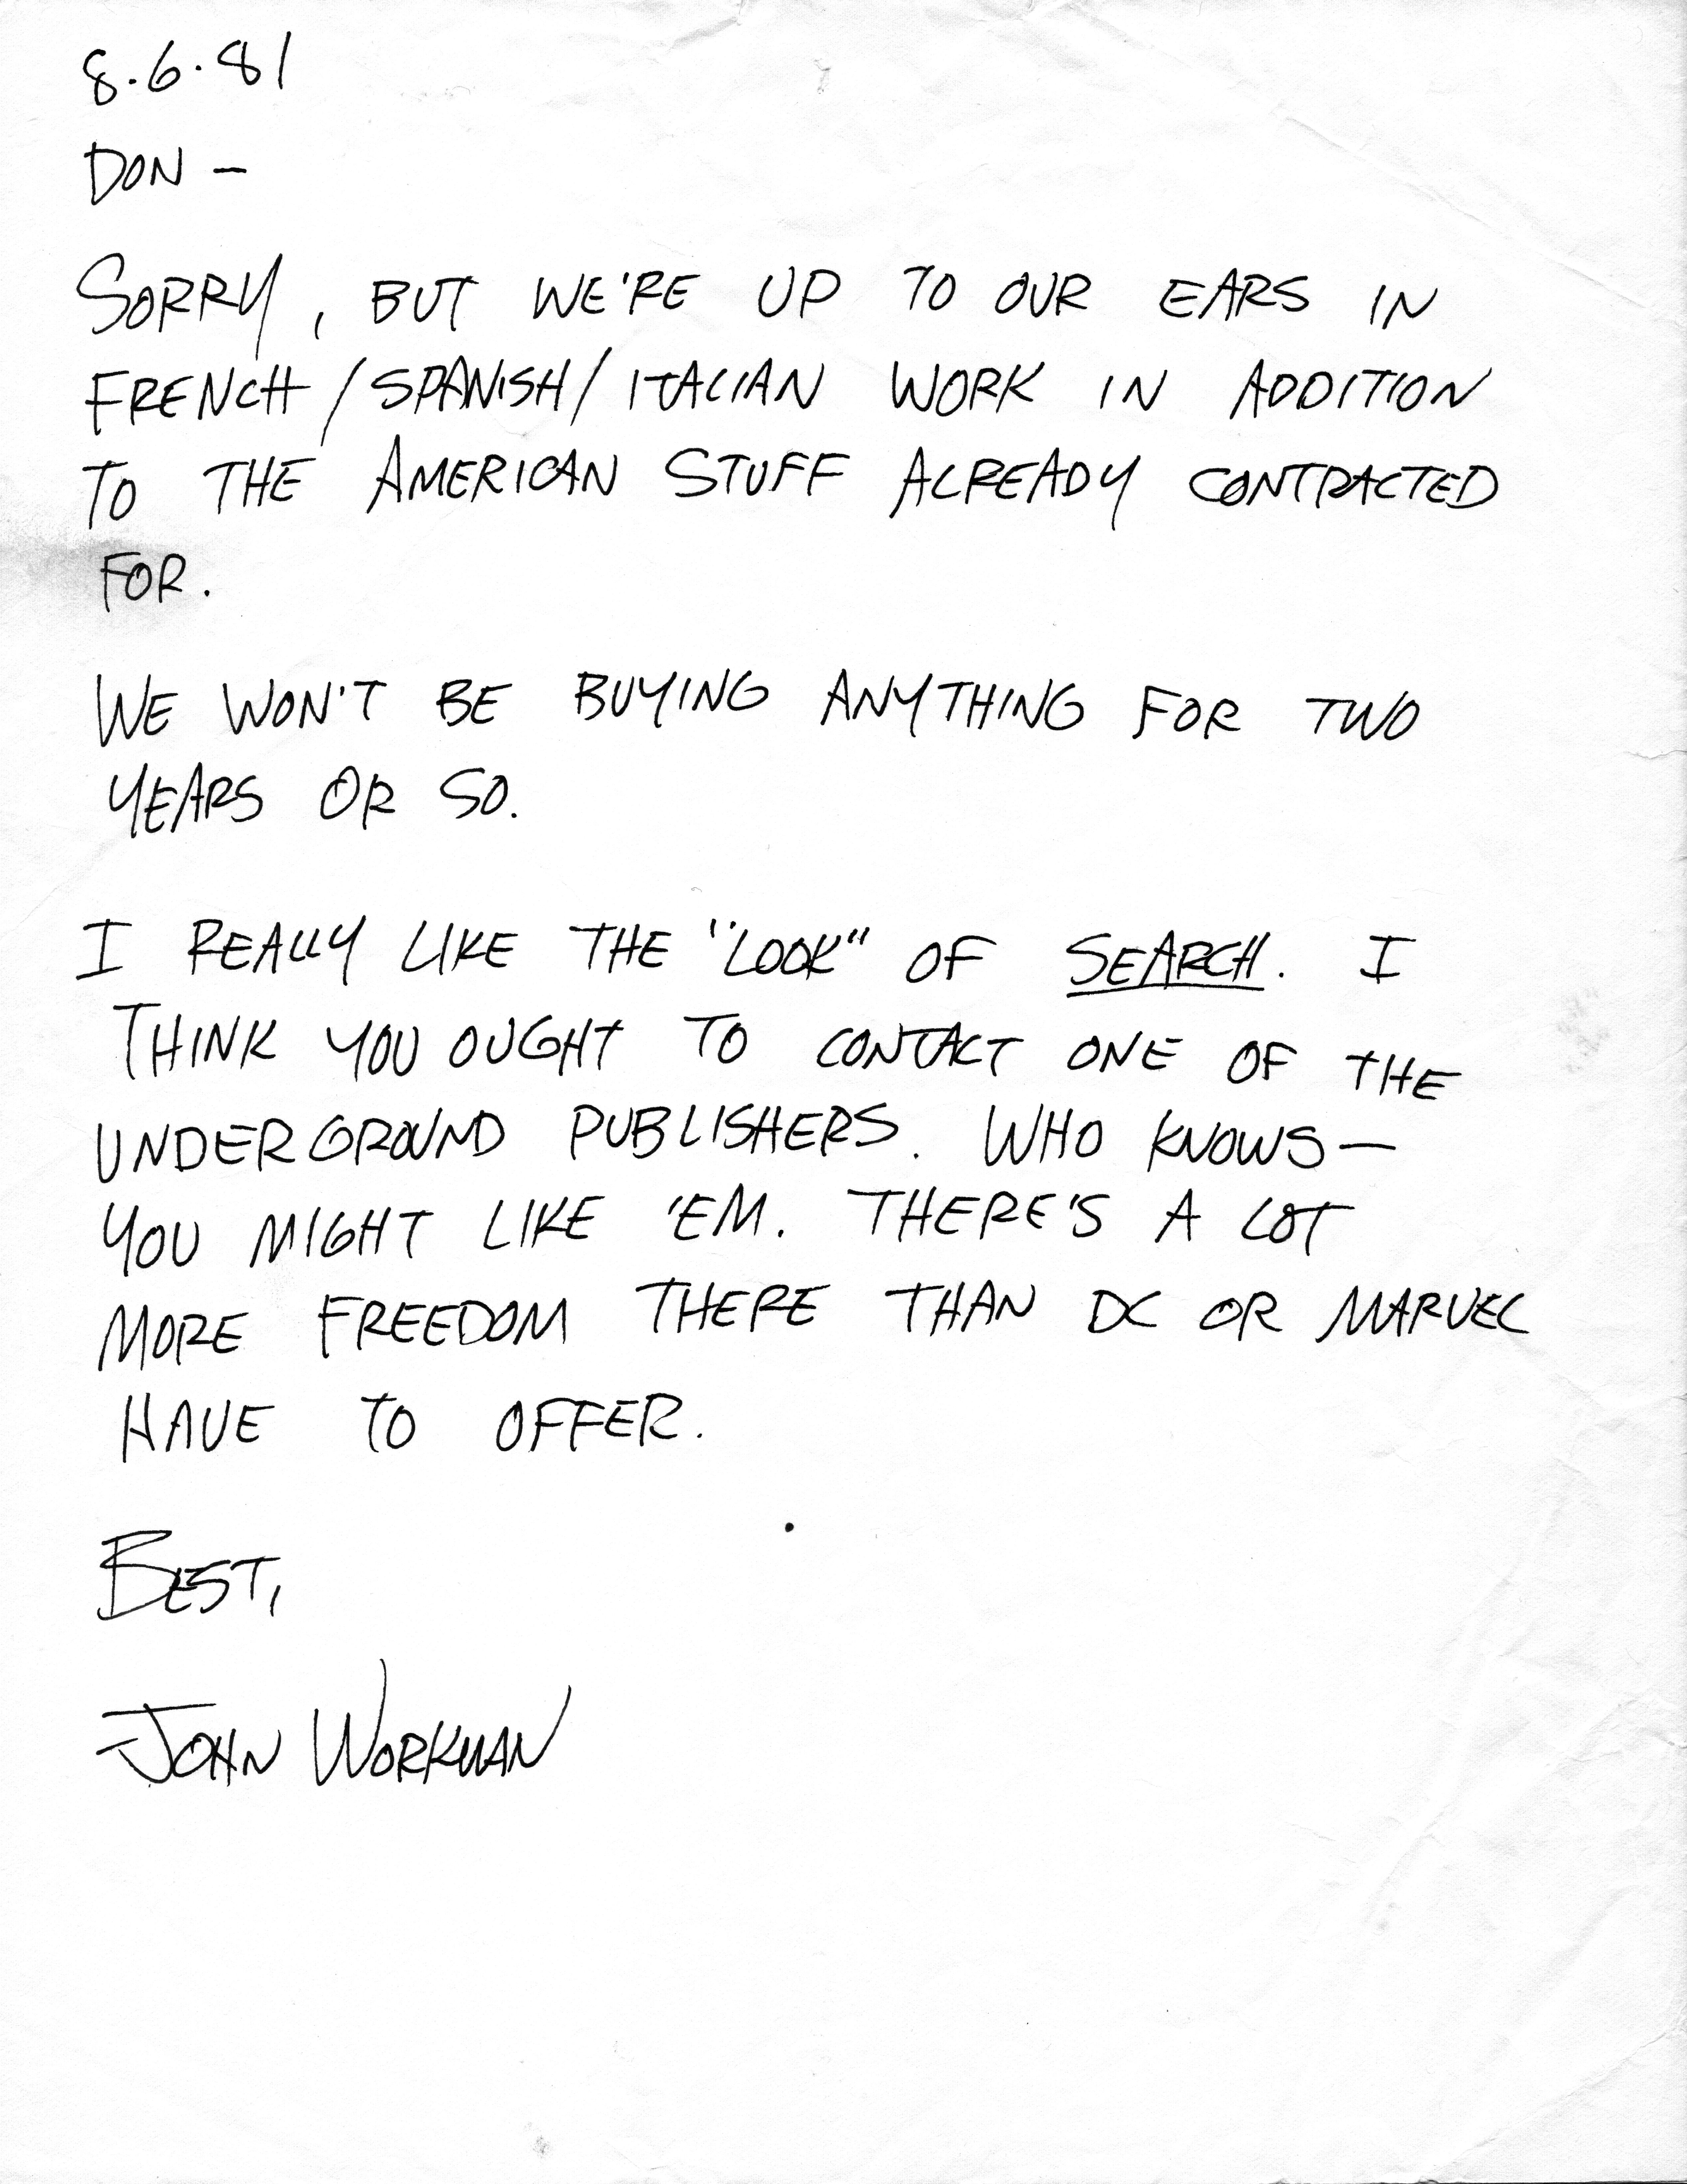 8.6.81
DON —
SORRY, BUT WE'RE UP TO OUR EARS IN
FRENCH/SPANISH/ITALIAN WORK IN ADDITION
TO THE AMERICAN STUFF ALREADY CONTRACTED
FOR.
WE WON'T BE BUYING ANYTHING FOR TWO
YEARS OR SO.
I REALLY LIKE THE "LOOK" OF SEARCH. I
THINK YOU OUGHT TO CONTACT ONE OF THE
UNDERGROUND PUBLISHERS. WHO KNOWS—
YOU MIGHT LIKE 'EM. THERE'S A LOT
MORE FREEDOM THERE THAN DC OR MARVEL
HAVE TO OFFER.
BEST,
JOHN WORKMAN